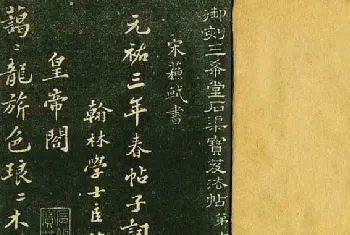 御刻三希堂石渠寶笈法帖第
宋蘇軾書
元祐三年春帖子詞
翰林學士臣
皇帝閣
藹藹龍旂色琅琅木